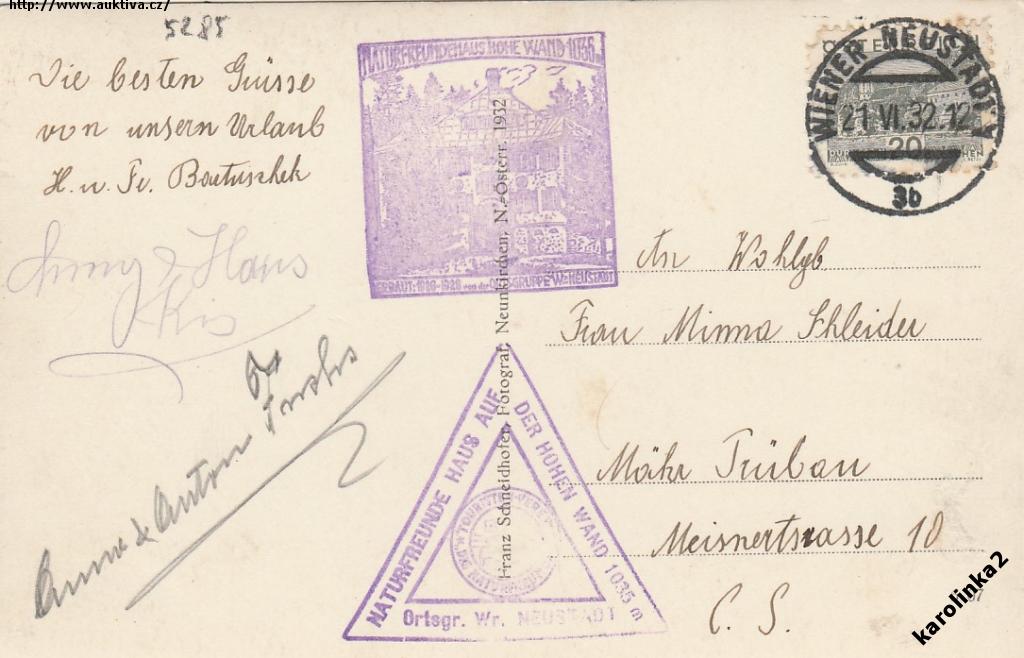 http://www.auktiva.cz/
5285
Die besten Grüsse
von unsern Urlaub
H. u. Fr. Bartuschek
& Hans
Kis
Anna & Anton
NATURFREUNDEHAUS HOHE WAND 1035 m
ERBAUT: 1926-1928 von der ORTSGRUPPE Wr. NEUSTADT
Franz Schneidhofer, Fotograf, Neunkirchen, N.-Österr. 1932
NATURFREUNDE HAUS AUF DER HOHEN WAND 1035 m
TOURISTEN-VEREIN
Ortsgr. Wr. NEUSTADT
WIENER NEUSTADT 1
21.VI.32.12
20
3b
An Wohlgb
Frau Minna Schleider
Mähr Trübau
Meisnertstrasse 18
C. S.
karolinka2